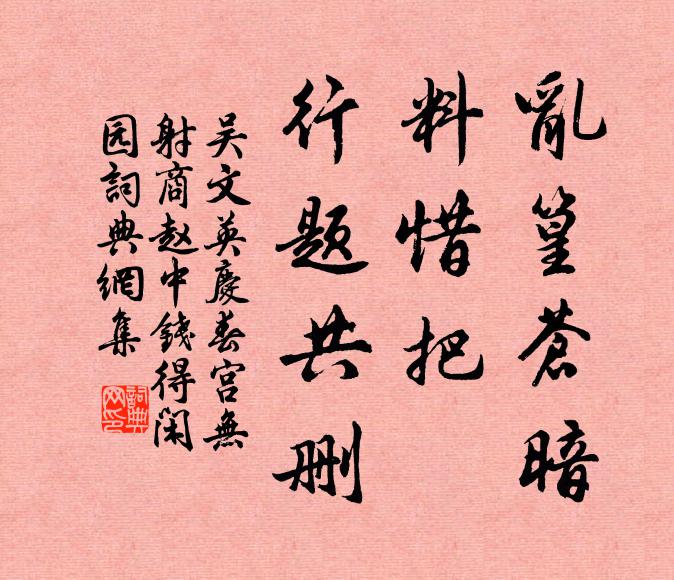 亂篁蒼暗
料惜把
行题共删
吴文英慶春宮無
射商赵中錢得閑
园詞典網集
詞典网印